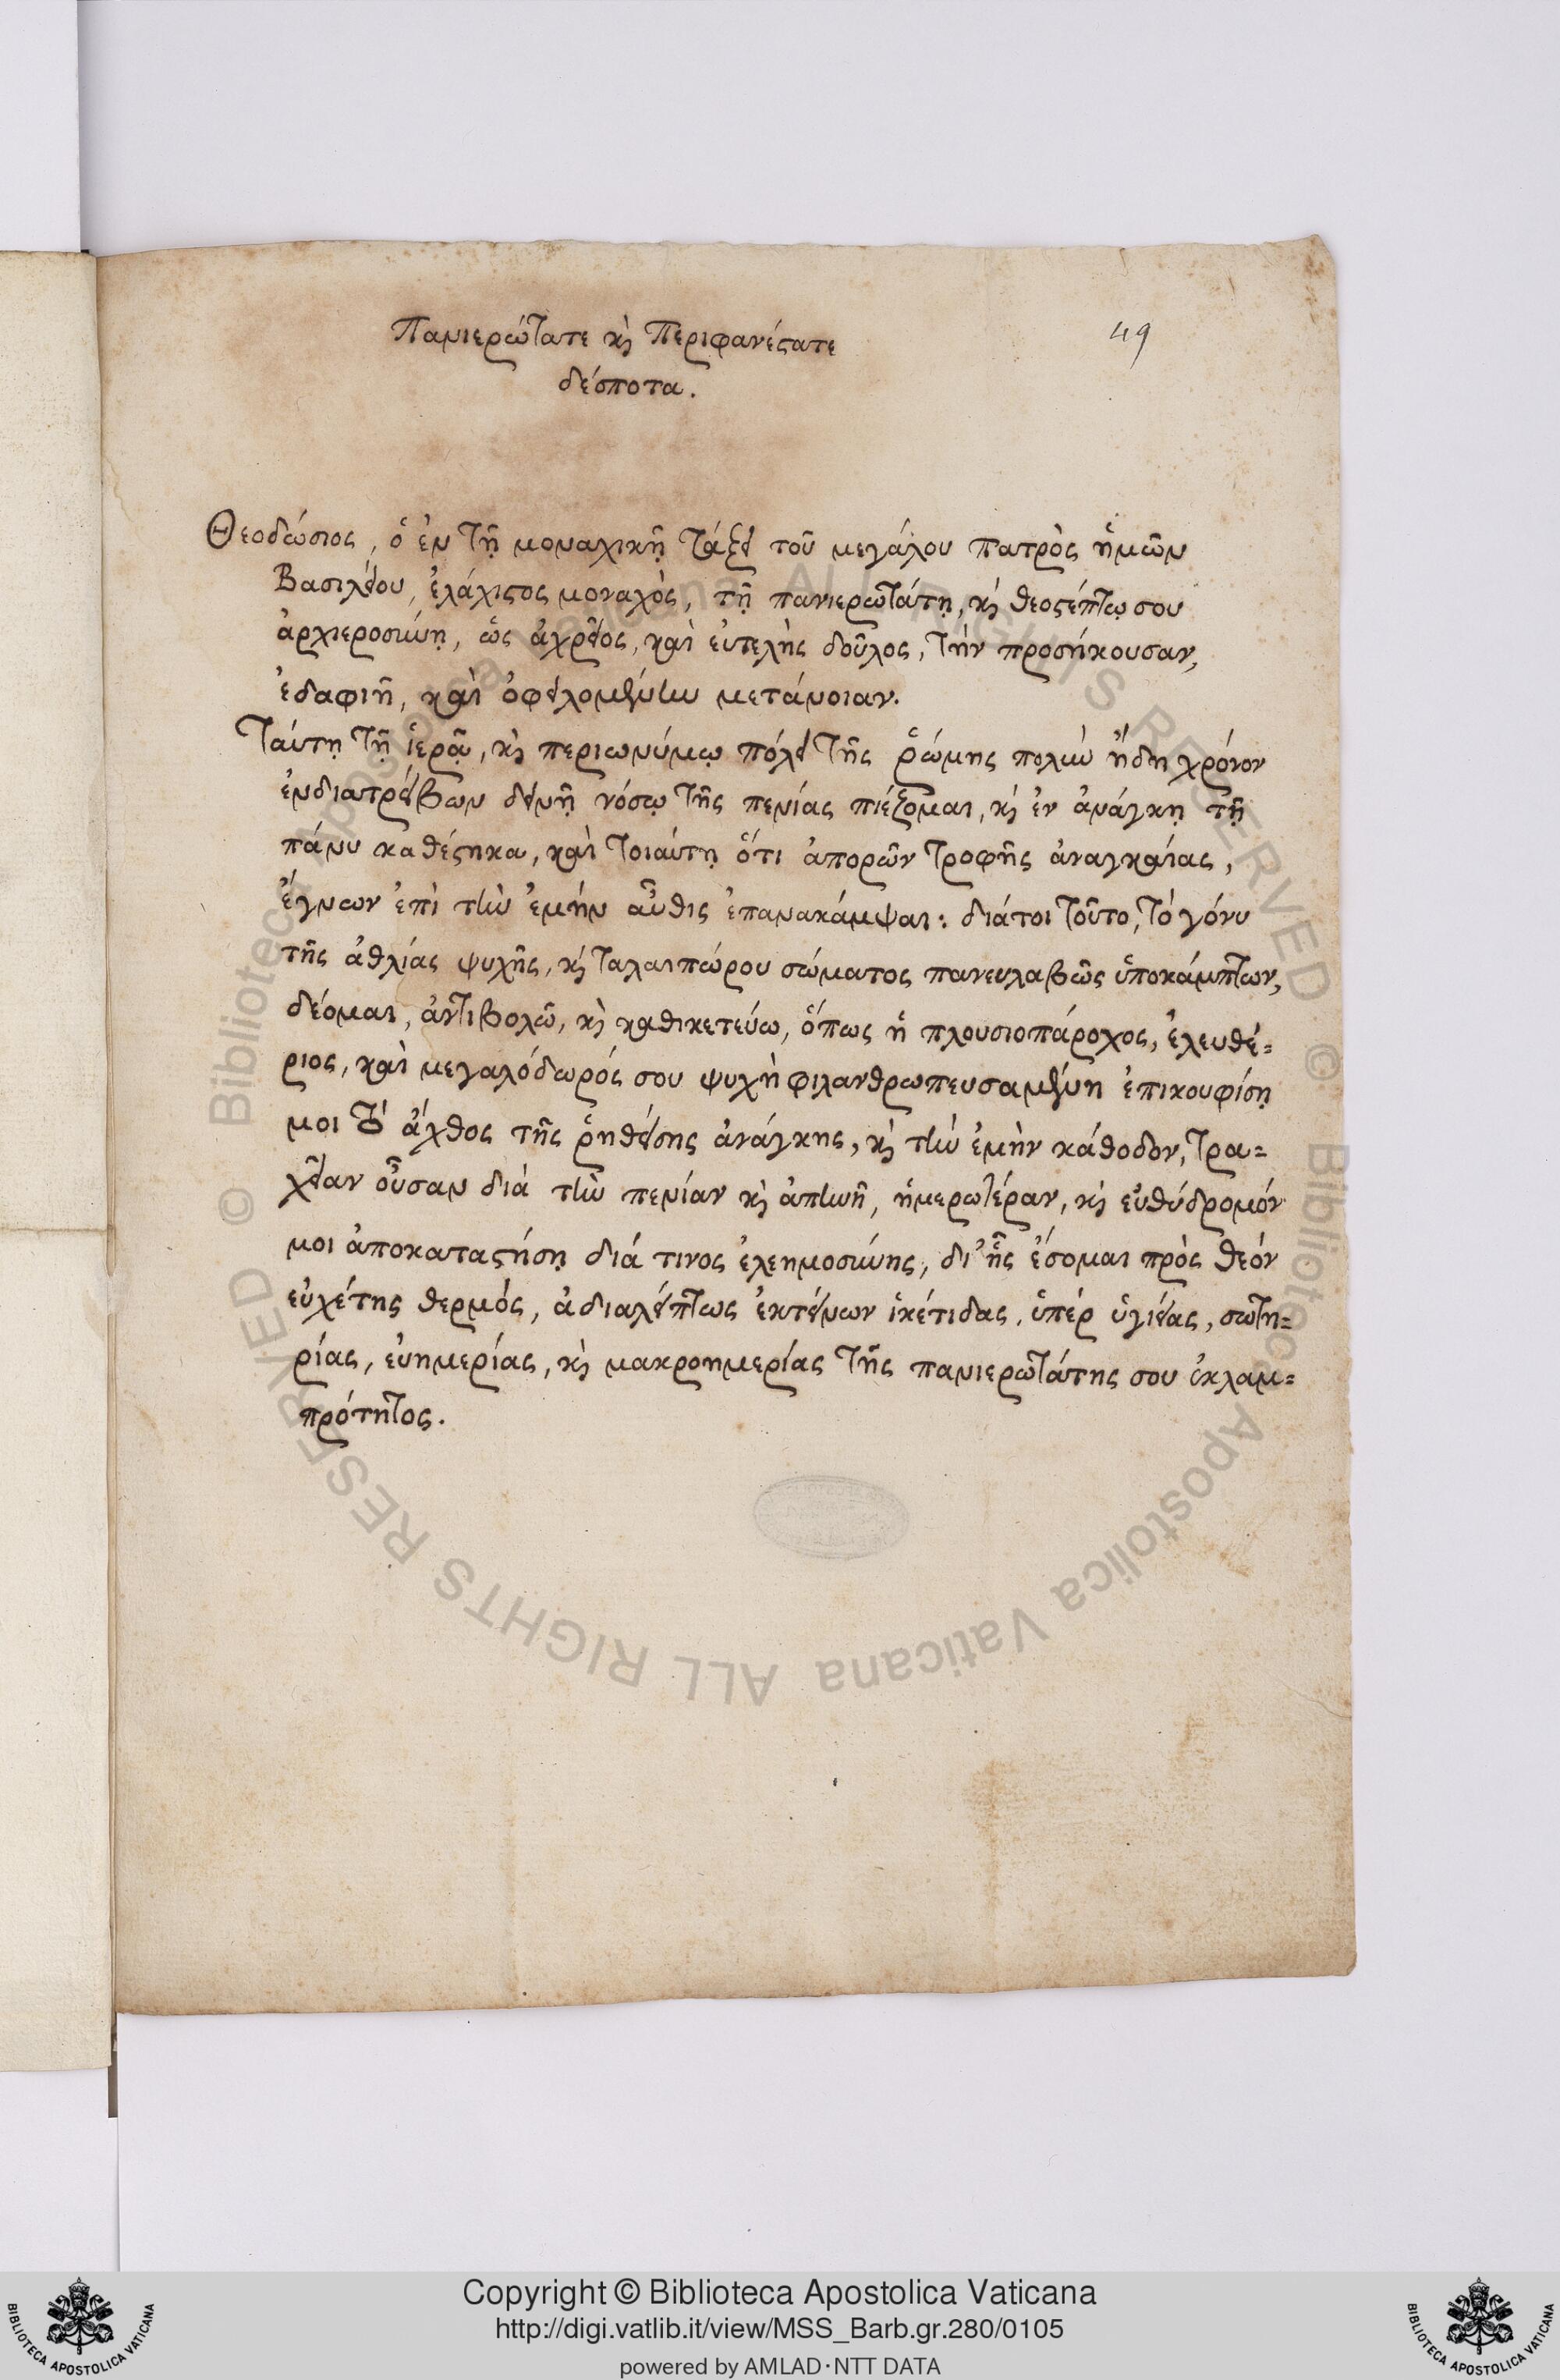 Πανιερώτατε κὶ Περιφανέϛατε
49
δέσποτα.
Θεοδώσιος, ὁ ἐν τῇ μοναχικῇ τάξει τοῦ μεγάλου πατρὸς ἡμῶν
Βασιλείου, ἐλάχιϛος μοναχὸς, τῇ πανιερωτάτῃ, κὶ θεοϛέπτῳ σου
ἀρχιεροσύνῃ, ὡς ἀχρεῖος, καὶ εὐτελὴς δοῦλος, τὴν προσήκουσαν,
ἐδαφιῆ, καὶ ὀφειλομένην μετάνοιαν.
Ταύτῃ τῇ ἱερᾷ, κὶ περιωνύμῳ πόλει τῆς ῥώμης πολὺν ἤδη χρόνον
ἐνδιατρείβων δεινῇ νόσῳ τῆς πενίας πιέζομαι, κὶ ἐν ἀνάγκῃ τῇ
πάνυ καθέϛηκα, καὶ τοιαύτῃ ὅτι ἀπορῶν τροφῆς ἀναγκαίας,
ἔγνων ἐπὶ τὴν ἐμὴν αὖθις ἐπανακάμψαι: διάτοι τοῦτο, τὸ γόνυ
τῆς ἀθλίας ψυχῆς, κὶ ταλαιπώρου σώματος πανευλαβῶς ὑποκάμπτων,
δέομαι, ἀντιβολῶ, κὶ καθικετεύω, ὅπως ἡ πλουσιοπάροχος, ἐλευθέ=
ριος, καὶ μεγαλόδωρός σου ψυχὴ φιλανθρωπευσαμένη ἐπικουφίσῃ
μοι τὸ ἄχθος τῆς ῥηθείσης ἀνάγκης, κὶ τὴν ἐμὴν κάθοδον, τρα=
χεῖαν οὖσαν διὰ τὴν πενίαν κὶ ἀπηνῆ, ἡμερωτέραν, κὶ εὐθύδρομόν
μοι ἀποκαταϛήσῃ διά τινος ἐλεημοσύνης, δι' ἧς ἔσομαι πρὸς θεόν
εὐχέτης θερμὸς, ἀδιαλείπτως ἐκτείνων ἱκέτιδας, ὑπὲρ ὑγιείας, σωτη=
ρίας, εὐημερίας, κὶ μακροημερίας τῆς πανιερωτάτης σου ἐκλαμ=
πρότητος.
© Biblioteca Apostolica Vaticana ALL RIGHTS RESERVED
© Biblioteca Apostolica Vaticana ALL RIGHTS RESERVED
Copyright © Biblioteca Apostolica Vaticana
http://digi.vatlib.it/view/MSS_Barb.gr.280/0105
powered by AMLAD·NTT DATA
BIBLIOTECA APOSTOLICA VATICANA
BIBLIOTECA APOSTOLICA VATICANA